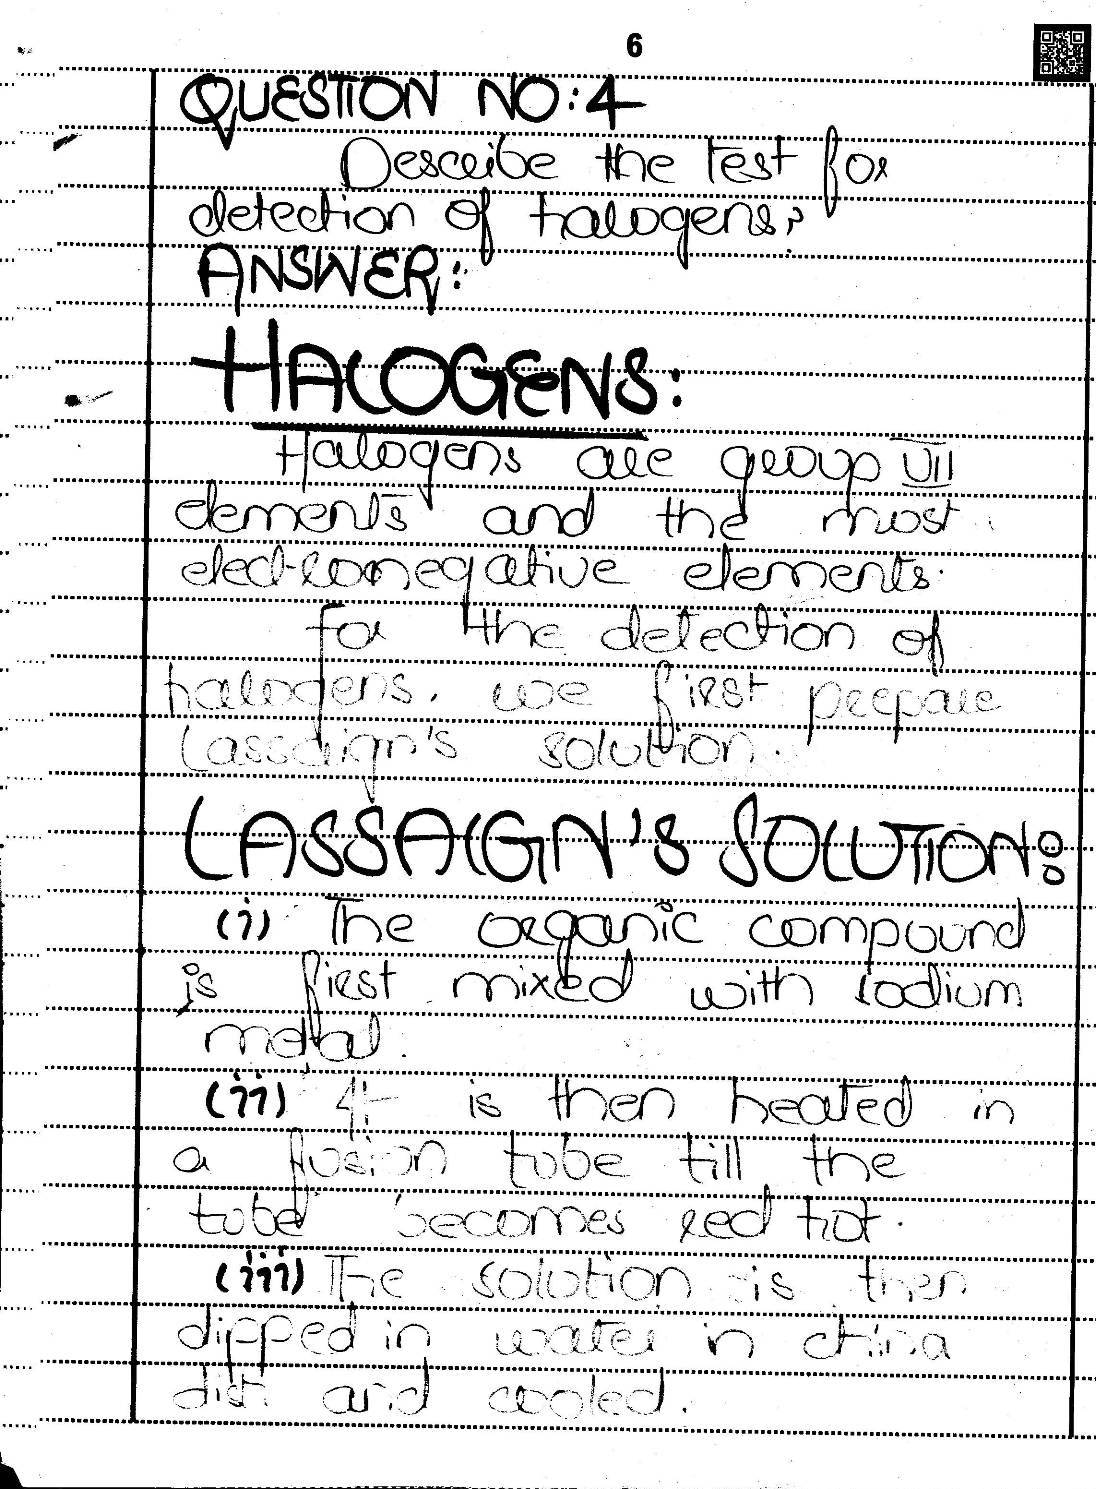 6
QUESTION NO:4
Describe the test for
detection of halogens?
ANSWER:
HALOGENS:
Halogens are group VII
elements and the most
electronegative elements.
for the detection of
halogens, we first prepare
Lassaign's solution.
LASSAIGN'S SOLUTION:
(i) The organic compound
is first mixed with sodium
metal.
(ii) It is then heated in
a fusion tube till the
tube becomes red hot.
(iii) The solution is then
dipped in water in china
dish and cooled.